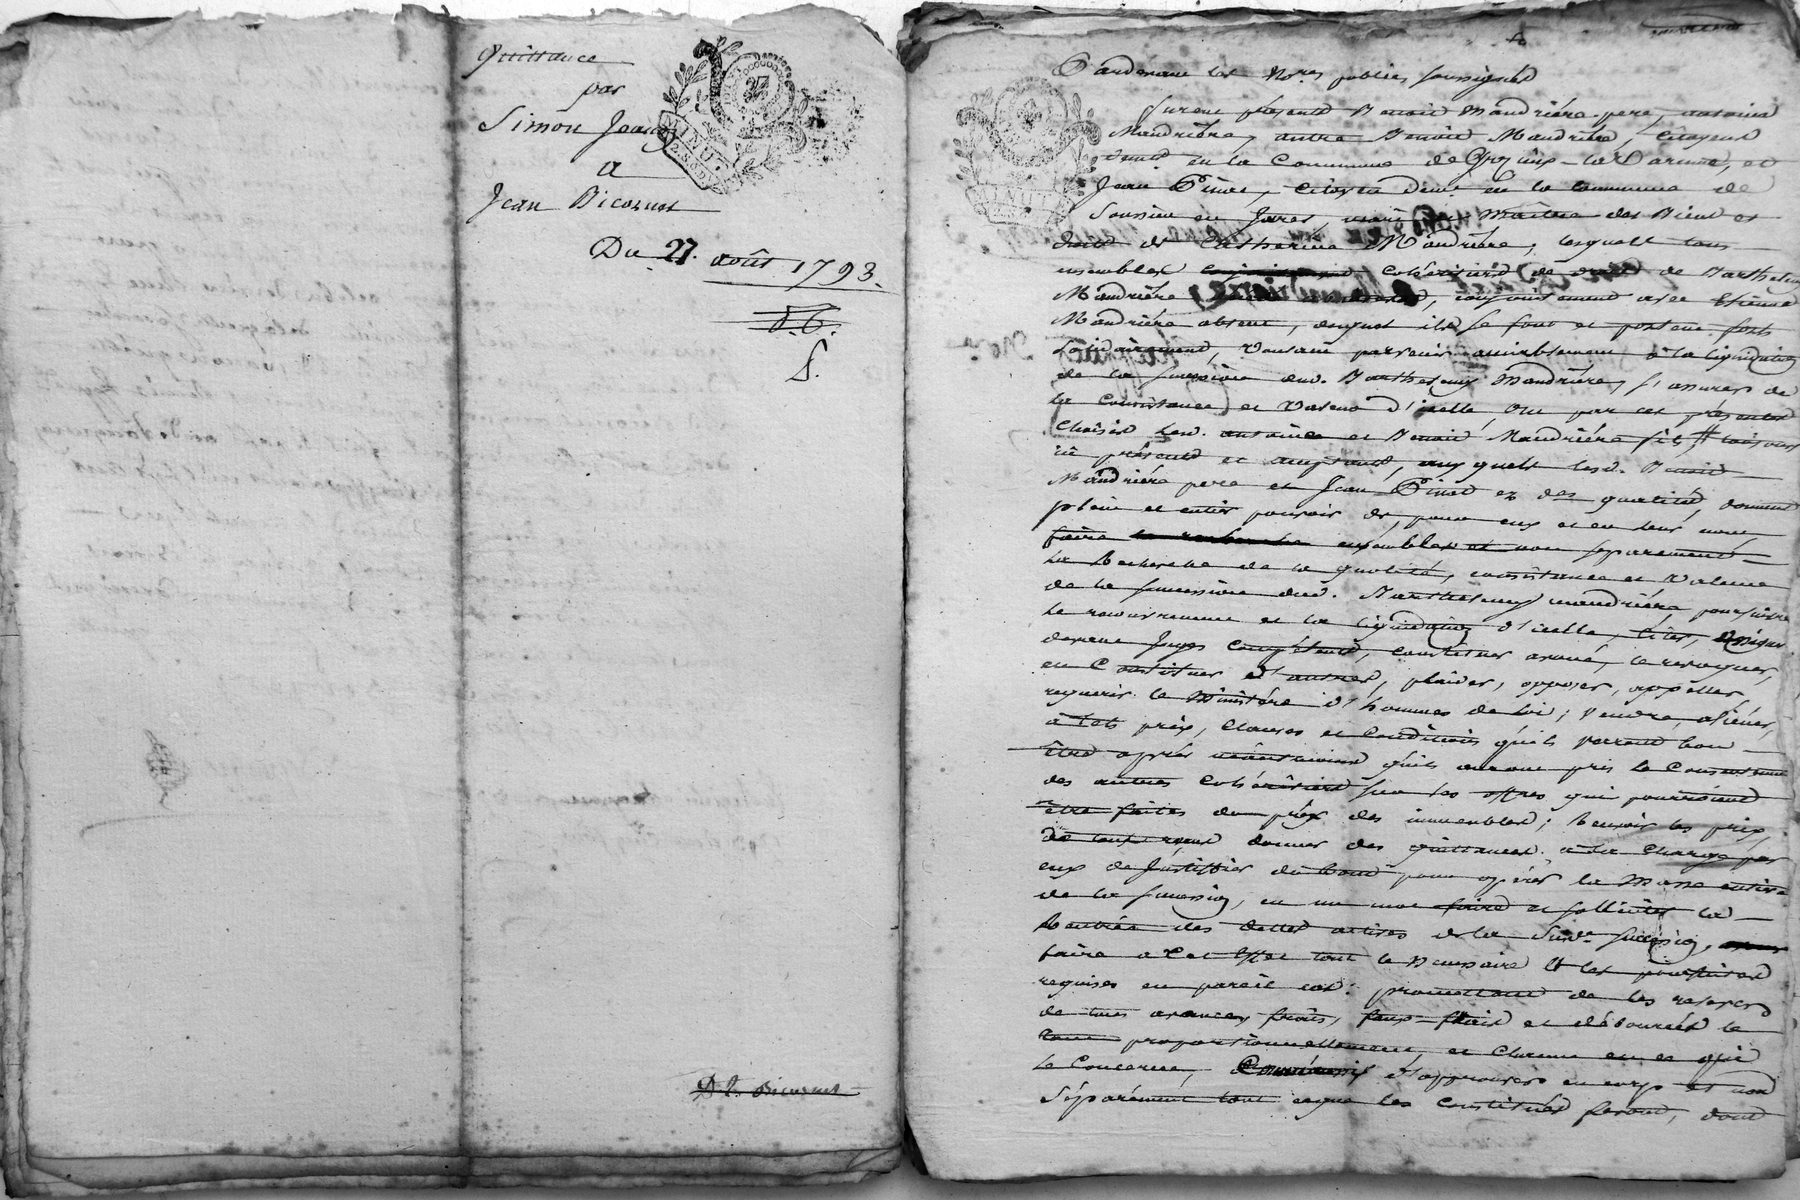 Quittance
par
Simon Jean
a
Jean Bicornet
Du 27. août 1793.
Pardevant les No.res publics soussignés
furent présents Benoit Mandrière pere, antoine
Mandrière, autre Benoit Mandrière, Citoyens
demt en la Commune de
Jean Pinet, Citoyen demt en la commune de
Soussieu en Jarest, mari et Maître des Biens et
droits de Catherine Mandrière, lesquels tous
ensembles cohéritiers de droit de Barthelemy
Mandrière conjointement avec Etienne
Mandrière absent, duquel ils se font et portent forts
solidairement, voulant parvenir amiablement à la liquidation
de la succession dud. Barthelemy Mandrière, s'assurer de
la Consistance et Valeur d'icelle, Ont par ces présentes
choisis lesd. antoine et Benoit Mandrière fils
ici présents et acceptants, auxquels lesd. Benoit
Mandrière pere et Jean Pinet ez des qualités, donnent
plein et entier pouvoir de, pour eux et en leurs noms
faire ensembles et non séparément
la Recherche de la qualité, consistance et Valeur
de la succession dud. Barthelemy mandrière, poursuivre
le recouvrement et la liquidation d'icelle, citer,
devant Juges Compétents, constituer avoué, le revoquer,
en Constituer d'autres, plaider, opposer, appeller,
requerir le Ministère d'hommes de loi; Vendre, aliéner,
à tels prix, clauses et Conditions qu'ils verront bon
être après néantmoins qu'ils auront pris le Consentement
des autres Cohéritiers sur les offres qui pourroient
être faites du prix des immeubles; Recevoir les prix,
de tout reçu donner des quittances à la charge par
eux de Justiffier du tout pour opérer la Masse entière
de la succession, en un mot faire et solliciter la
Rentrée des dettes actives de la Susd.e succession,
faire a Cet Effet tout le Necessaire & les poursuites
requises en pareil cas: promettant de les relever
de tous avances, frais, faux-frais et déboursés le
tout proportionnellement, et chacun en ce qui
le Concerne, d'approuver en corps et non
séparément tout ce que les constitués feront, dont